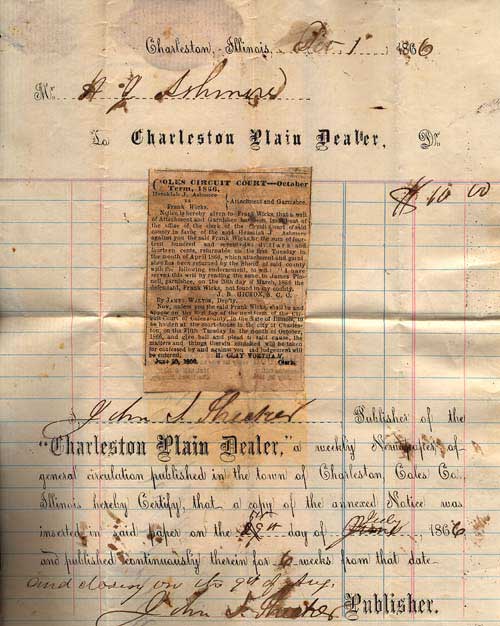 Charleston, Illinois, 1 1866
Mr. H J Ashmore
To Charleston Plain Dealer, Dr.
10 00
COLES CIRCUIT COURT—October
Term, 1866.
Hezekiah J. Ashmore
vs
Frank Wicks.
Attachment and Garnishee.
Notice is hereby given to Frank Wicks, that a writ
of Attachment and Garnishee has been issued out of
the office of the clerk of the Circuit Court of said
county in favor of the said Hezekiah J. Ashmore
against you the said Frank Wicks for the sum of four-
teen hundred and dollars and
fourteen cents, returnable on the first Tuesday in
the month of April 1866, which attachment and garni-
shee has been returned by the Sheriff of said county
with the following endorsement, to wit: "I have
served this writ by reading the same to James Pin-
nell, garnishee, on the 26th day of March, 1866 the
defendant, Frank Wicks, not found in my county.
J. B. HICKOX, S. C. C.
By JAMES WALTON, Deputy.
Now, unless you the said Frank Wicks, shall be and
appear on the first day of the next term of the Cir-
cuit Court of Coles county, in the State of Illinois, to
be holden at the court-house in the city of Charles-
ton, on the Fifth Tuesday in the month of October,
1866, and give bail and plead to said cause, the
matters and things therein contained will be taken
for confessed by and against you and judgement will
be entered. H. CLAY WORTHAM,
June 28, 1866. Clerk.
I John S. Publisher of the
"Charleston Plain Dealer," a weekly Newspaper of
general circulation published in the town of Charleston, Coles Co.,
Illinois hereby Certify, that a copy of the annexed Notice was
inserted in said paper on the day of 1866
and published continuously therein for 6 weeks from that date
and closing on the 9th of Aug.
John S. Publisher.